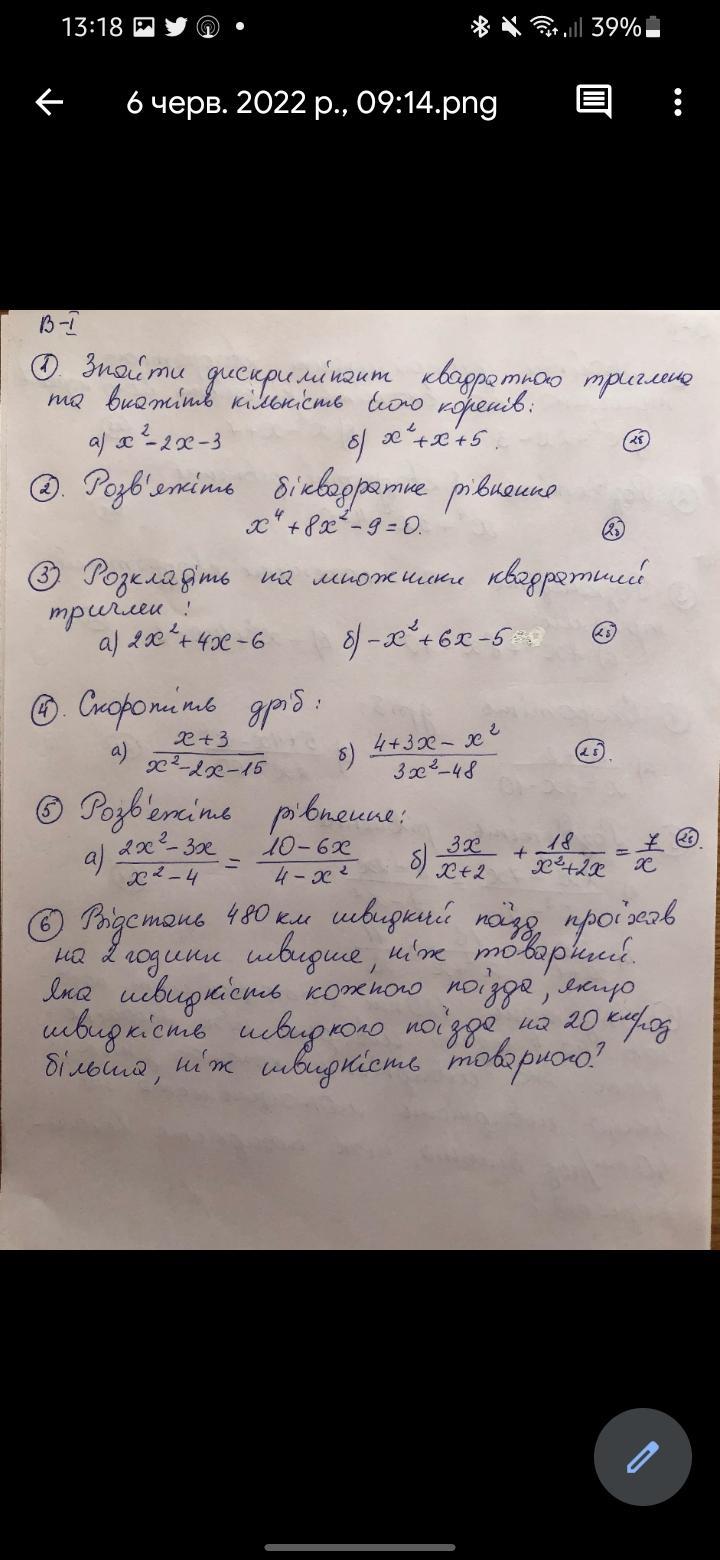 13:18 39%
6 черв. 2022 р., 09:14.png
В-І
1. Знайти дискримінант квадратного тричлена
та вкажіть кількість його коренів:
а) x²-2x-3 б) x²+x+5. 2б
2. Розв'яжіть біквадратне рівняння
x⁴+8x²-9=0. 2б
3 Розкладіть на множники квадратний
тричлен:
а) 2x²+4x-6 б) -x²+6x-5 2б
4. Скоротіть дріб:
а) (x+3)/(x²-2x-15) б) (4+3x-x²)/(3x²-48) 2б.
5 Розв'яжіть рівняння:
а) (2x²-3x)/(x²-4) = (10-6x)/(4-x²) б) 3x/(x+2) + 18/(x²+2x) = 7/x 2б.
6 Відстань 480 км швидкий поїзд проїхав
на 2 години швидше, ніж товарний.
Яка швидкість кожного поїзда, якщо
швидкість швидкого поїзда на 20 км/год
більша, ніж швидкість товарного?